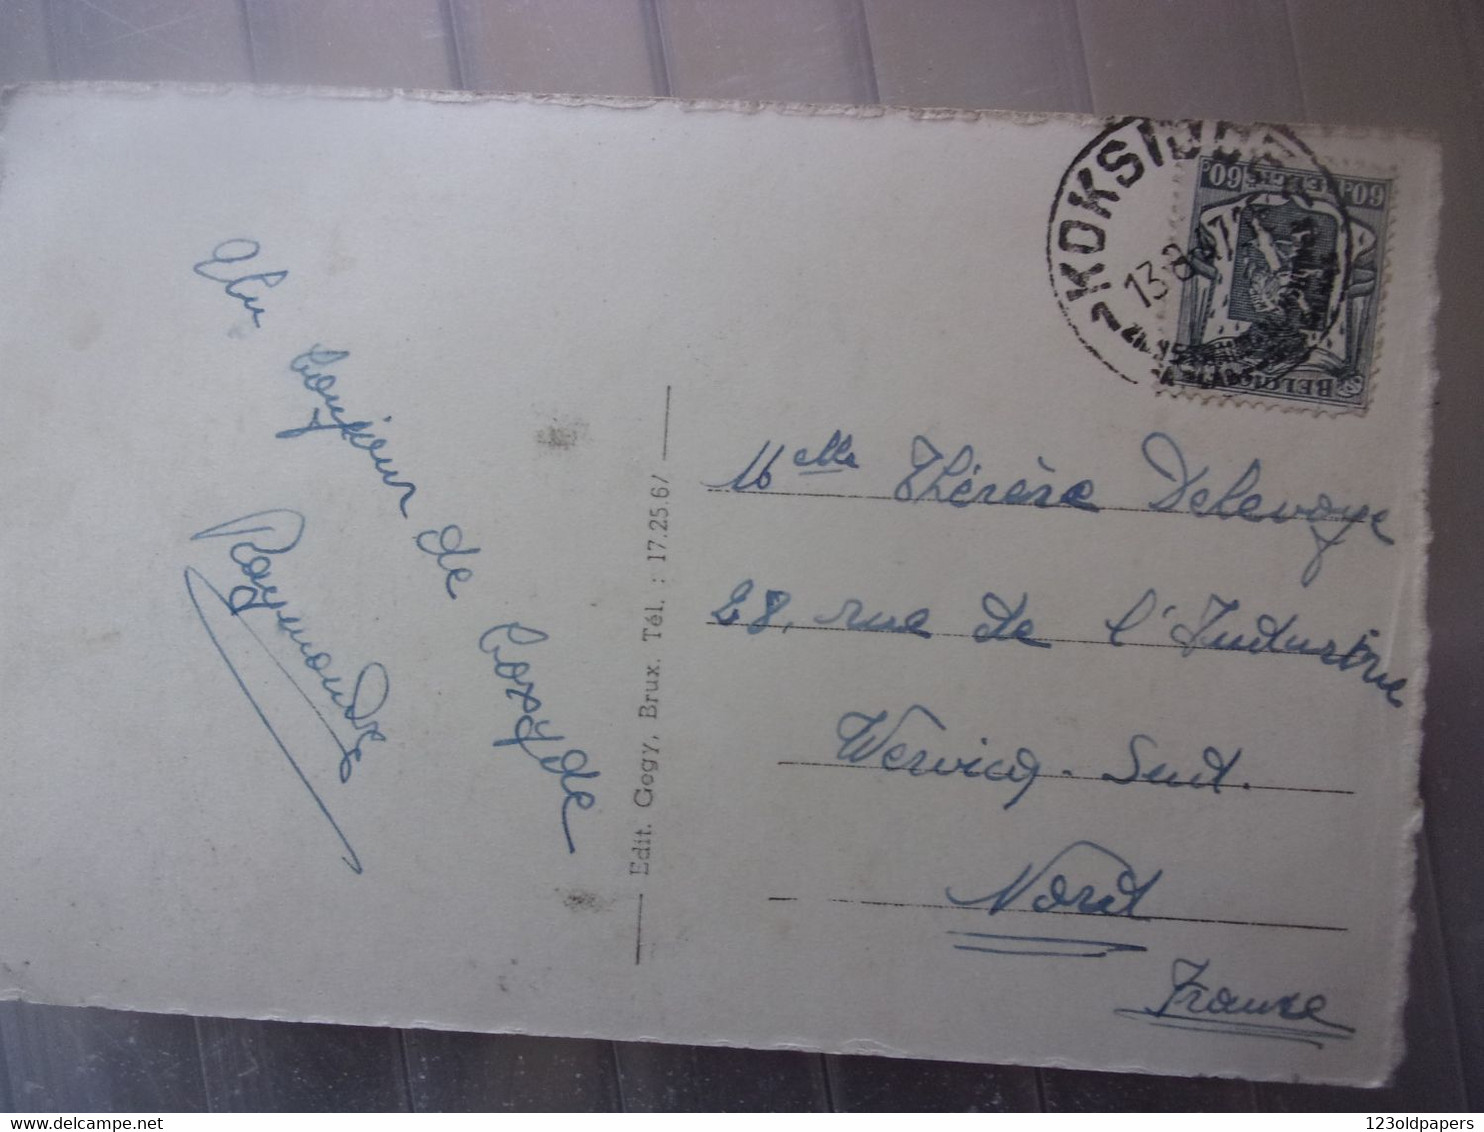 Un bonjour de Coxyde
Raymonde
Edit. Gogy, Brux. Tél. : 17.25.6/
KOKSIJDE
13-8-47
60 60
BELGIQUE
Melle Thérèse Delevoye
28, rue de l'Industrie
Wervicq-Sud.
Nord
France
123oldpapers